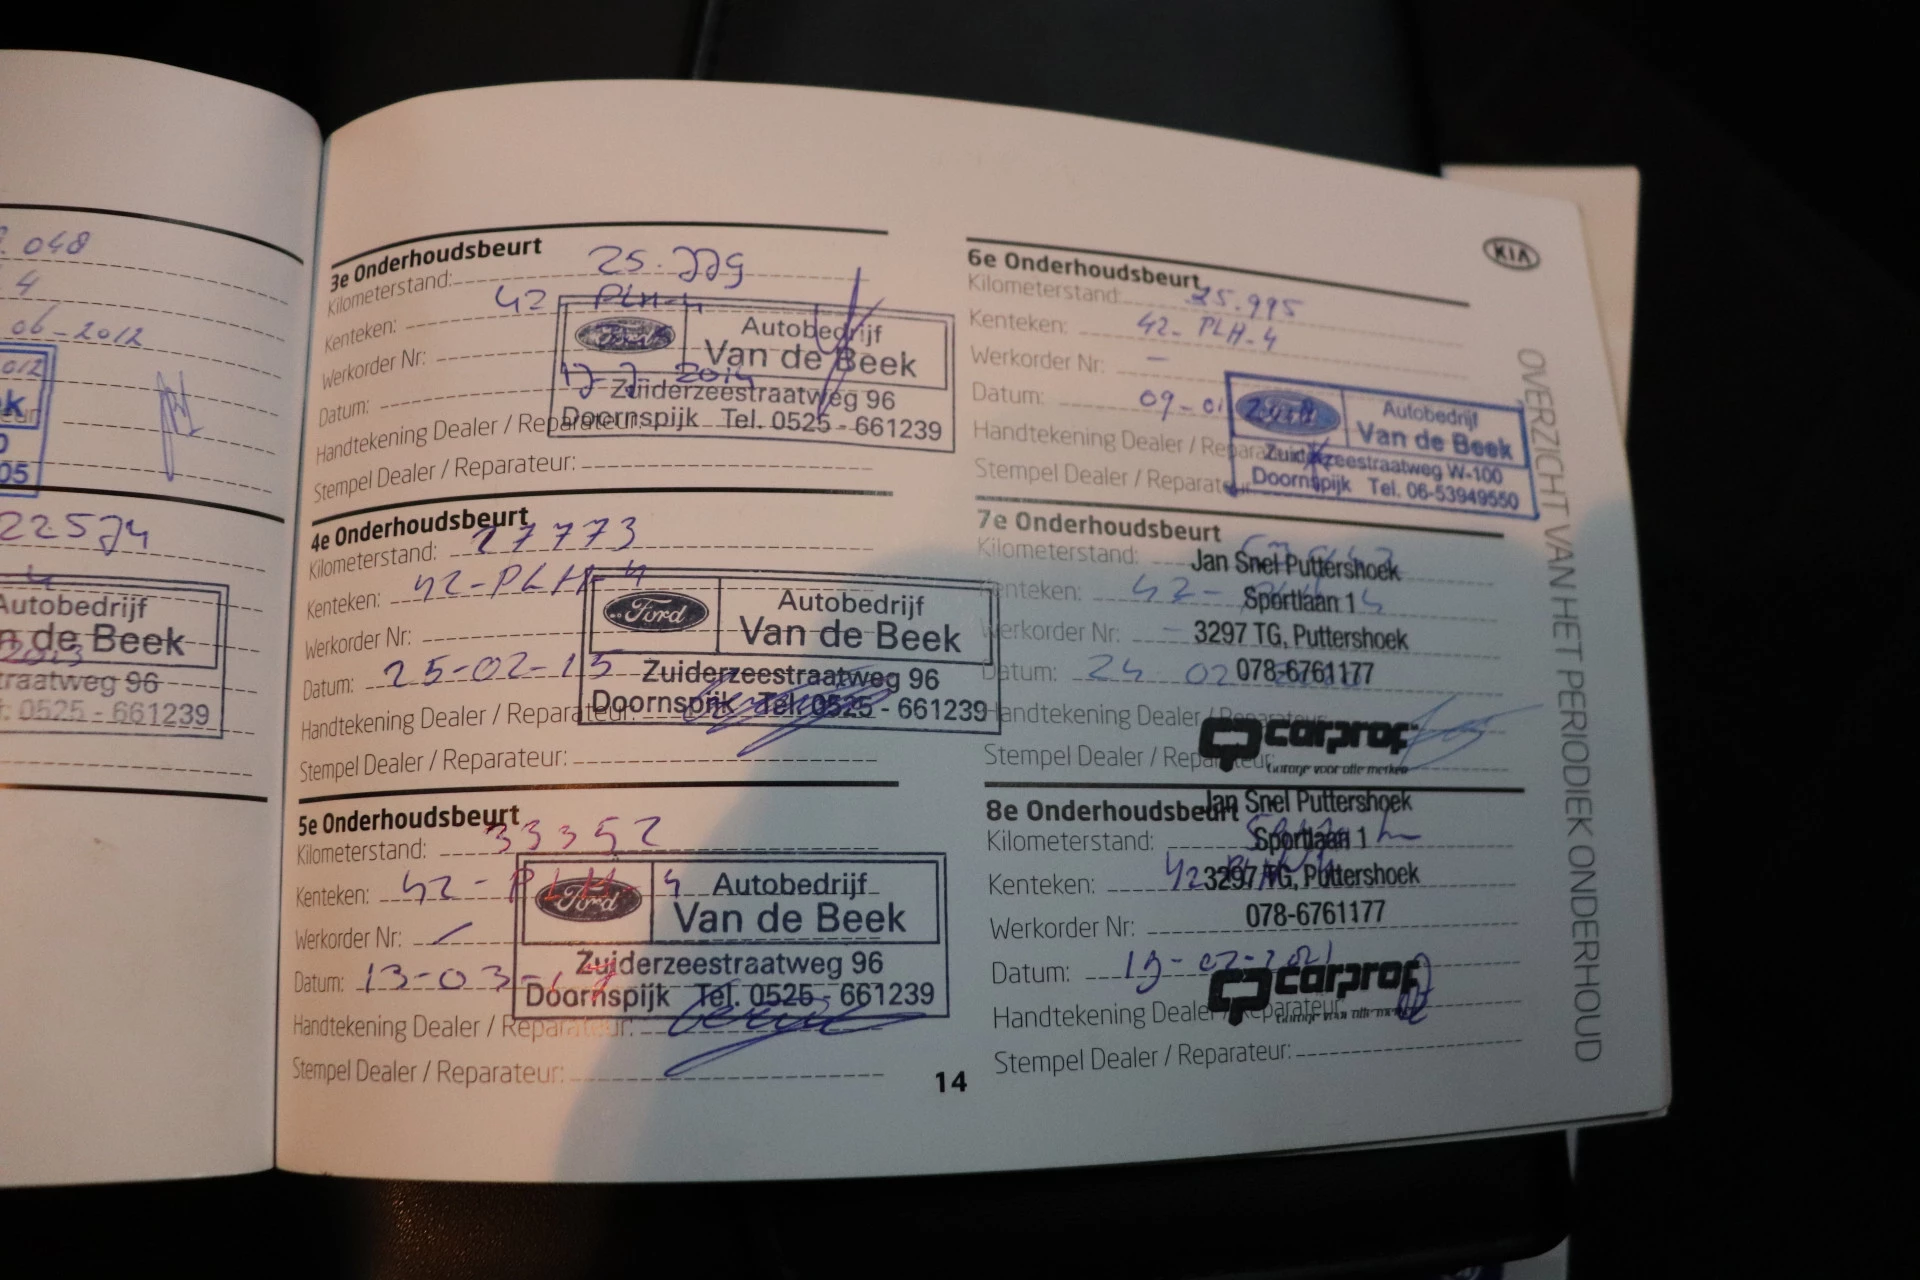 . 048
4
06-2012
k
05
22574
Autobedrijf
n de Beek
2013
raatweg 96
0525 - 661239
3e Onderhoudsbeurt
Kilometerstand: 25.779
Kenteken: 42 PLH-4
Werkorder Nr:
Datum: 2014
Handtekening Dealer / Reparateur:
Stempel Dealer / Reparateur:
Ford
Autobedrijf
Van de Beek
Zuiderzeestraatweg 96
Doornspijk Tel. 0525 - 661239
4e Onderhoudsbeurt
Kilometerstand: 27773
Kenteken: 42-PLH-4
Werkorder Nr:
Datum: 25-02-15
Handtekening Dealer / Reparateur:
Stempel Dealer / Reparateur:
Ford
Autobedrijf
Van de Beek
Zuiderzeestraatweg 96
Doornspijk Tel. 0525 - 661239
5e Onderhoudsbeurt
Kilometerstand: 33352
Kenteken: 42-PLH-4
Werkorder Nr:
Datum: 13-03-17
Handtekening Dealer / Reparateur:
Stempel Dealer / Reparateur:
Ford
Autobedrijf
Van de Beek
Zuiderzeestraatweg 96
Doornspijk Tel. 0525 - 661239
14
KIA
6e Onderhoudsbeurt
Kilometerstand: 25.995
Kenteken: 42-PLH-4
Werkorder Nr: -
Datum: 09-01
Handtekening Dealer / Reparateur:
Stempel Dealer / Reparateur:
Autobedrijf
Van de Beek
Zuiderzeestraatweg W-100
Doornspijk Tel. 06-53949550
7e Onderhoudsbeurt
Kilometerstand:
Kenteken: 42-
Werkorder Nr: -
Datum: 24 02
Handtekening Dealer / Reparateur:
Stempel Dealer / Reparateur:
Jan Snel Puttershoek
Sportlaan 1
3297 TG, Puttershoek
078-6761177
carprof
Garage voor alle merken
8e Onderhoudsbeurt
Kilometerstand:
Kenteken: 42
Werkorder Nr:
Datum: 19-02-2021
Handtekening Dealer / Reparateur:
Stempel Dealer / Reparateur:
Jan Snel Puttershoek
Sportlaan 1
3297 TG, Puttershoek
078-6761177
carprof
Garage voor alle merken
OVERZICHT VAN HET PERIODIEK ONDERHOUD